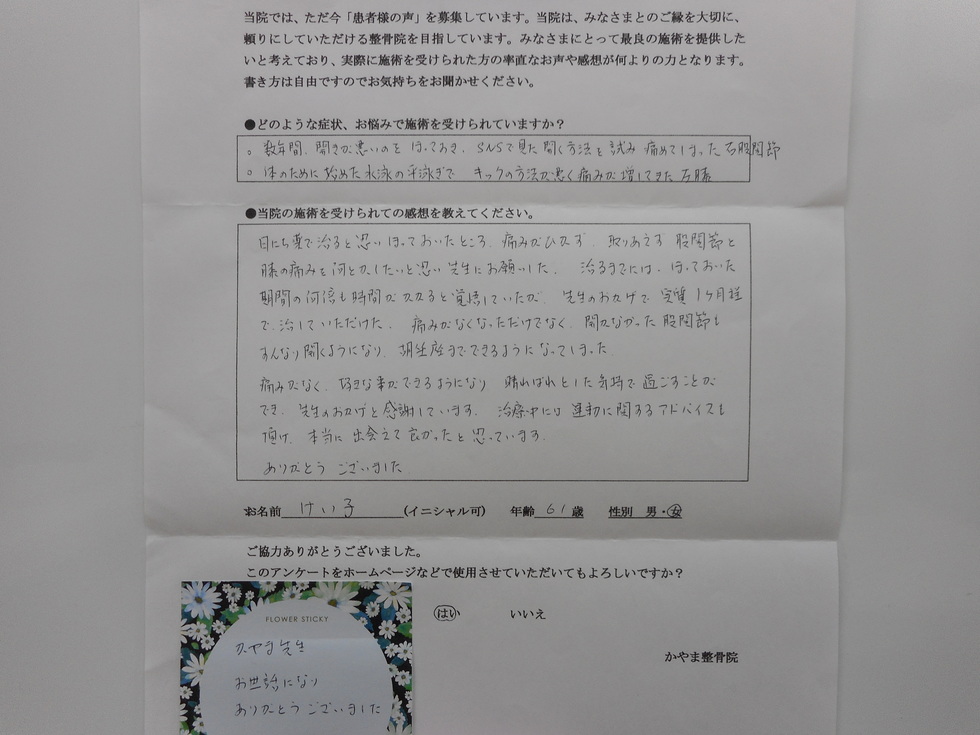 当院では、ただ今「患者様の声」を募集しています。当院は、みなさまとのご縁を大切に、
頼りにしていただける整骨院を目指しています。みなさまにとって最良の施術を提供した
いと考えており、実際に施術を受けられた方の率直なお声や感想が何よりの力となります。
書き方は自由ですのでお気持ちをお聞かせください。
●どのような症状、お悩みで施術を受けられていますか？
○ 数年間、開きが悪いのを ほっておき、SNSで見た開く方法を試み 痛めてしまった右股関節
○ 体のために始めた水泳の平泳ぎで キックの方法が悪く痛みが増してきた左膝
●当院の施術を受けられての感想を教えてください。
日にち薬で治ると思い ほっておいたところ、痛みがひかず、取りあえず 股関節と
膝の痛みを何とかしたいと思い先生にお願いした。 治るまでには、ほっておいた
期間の何倍も時間がかかると覚悟していたが、先生のおかげで実質1ヶ月程
で、治していただけた。 痛みがなくなっただけでなく、開かなかった股関節も
すんなり開くようになり、胡坐座までできるようになってしまった。
痛みがなく、好きな事ができるようになり 晴ればれとした気持で過ごすことが
でき、先生のおかげと感謝しています。 治療中には運動に関するアドバイスも
頂け、本当に出会えて良かったと思っています。
ありがとうございました
お名前 けい子 (イニシャル可) 年齢 61 歳 性別 男・女
ご協力ありがとうございました。
このアンケートをホームページなどで使用させていただいてもよろしいですか？
はい いいえ
かやま整骨院
FLOWER STICKY
かやま先生
お世話になり
ありがとうございました